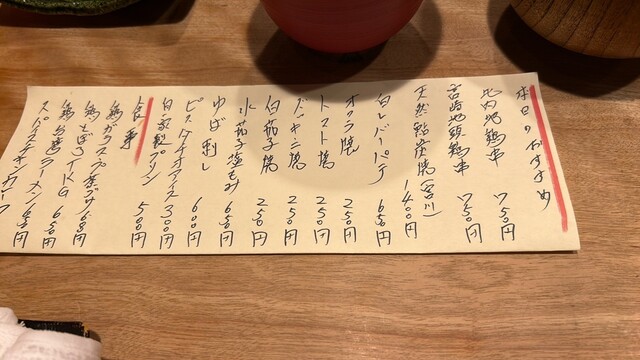 本日のおすすめ
比内地鶏串 750円
宮崎地頭鶏串 750円
天然鮎塩焼(宮川) 1400円
白レバーパテ 650円
オクラ焼 250円
トマト焼 250円
ズッキーニ焼 250円
白茄子焼 250円
水茄子塩もみ 650円
ゆば刺し 600円
ピスタチオアイス 300円
自家製プリン 500円
食事
鶏ガラスープ茶づけ 600円
鶏そぼろ
鶏白湯ラーメン 650円
スパイスチキンカレー